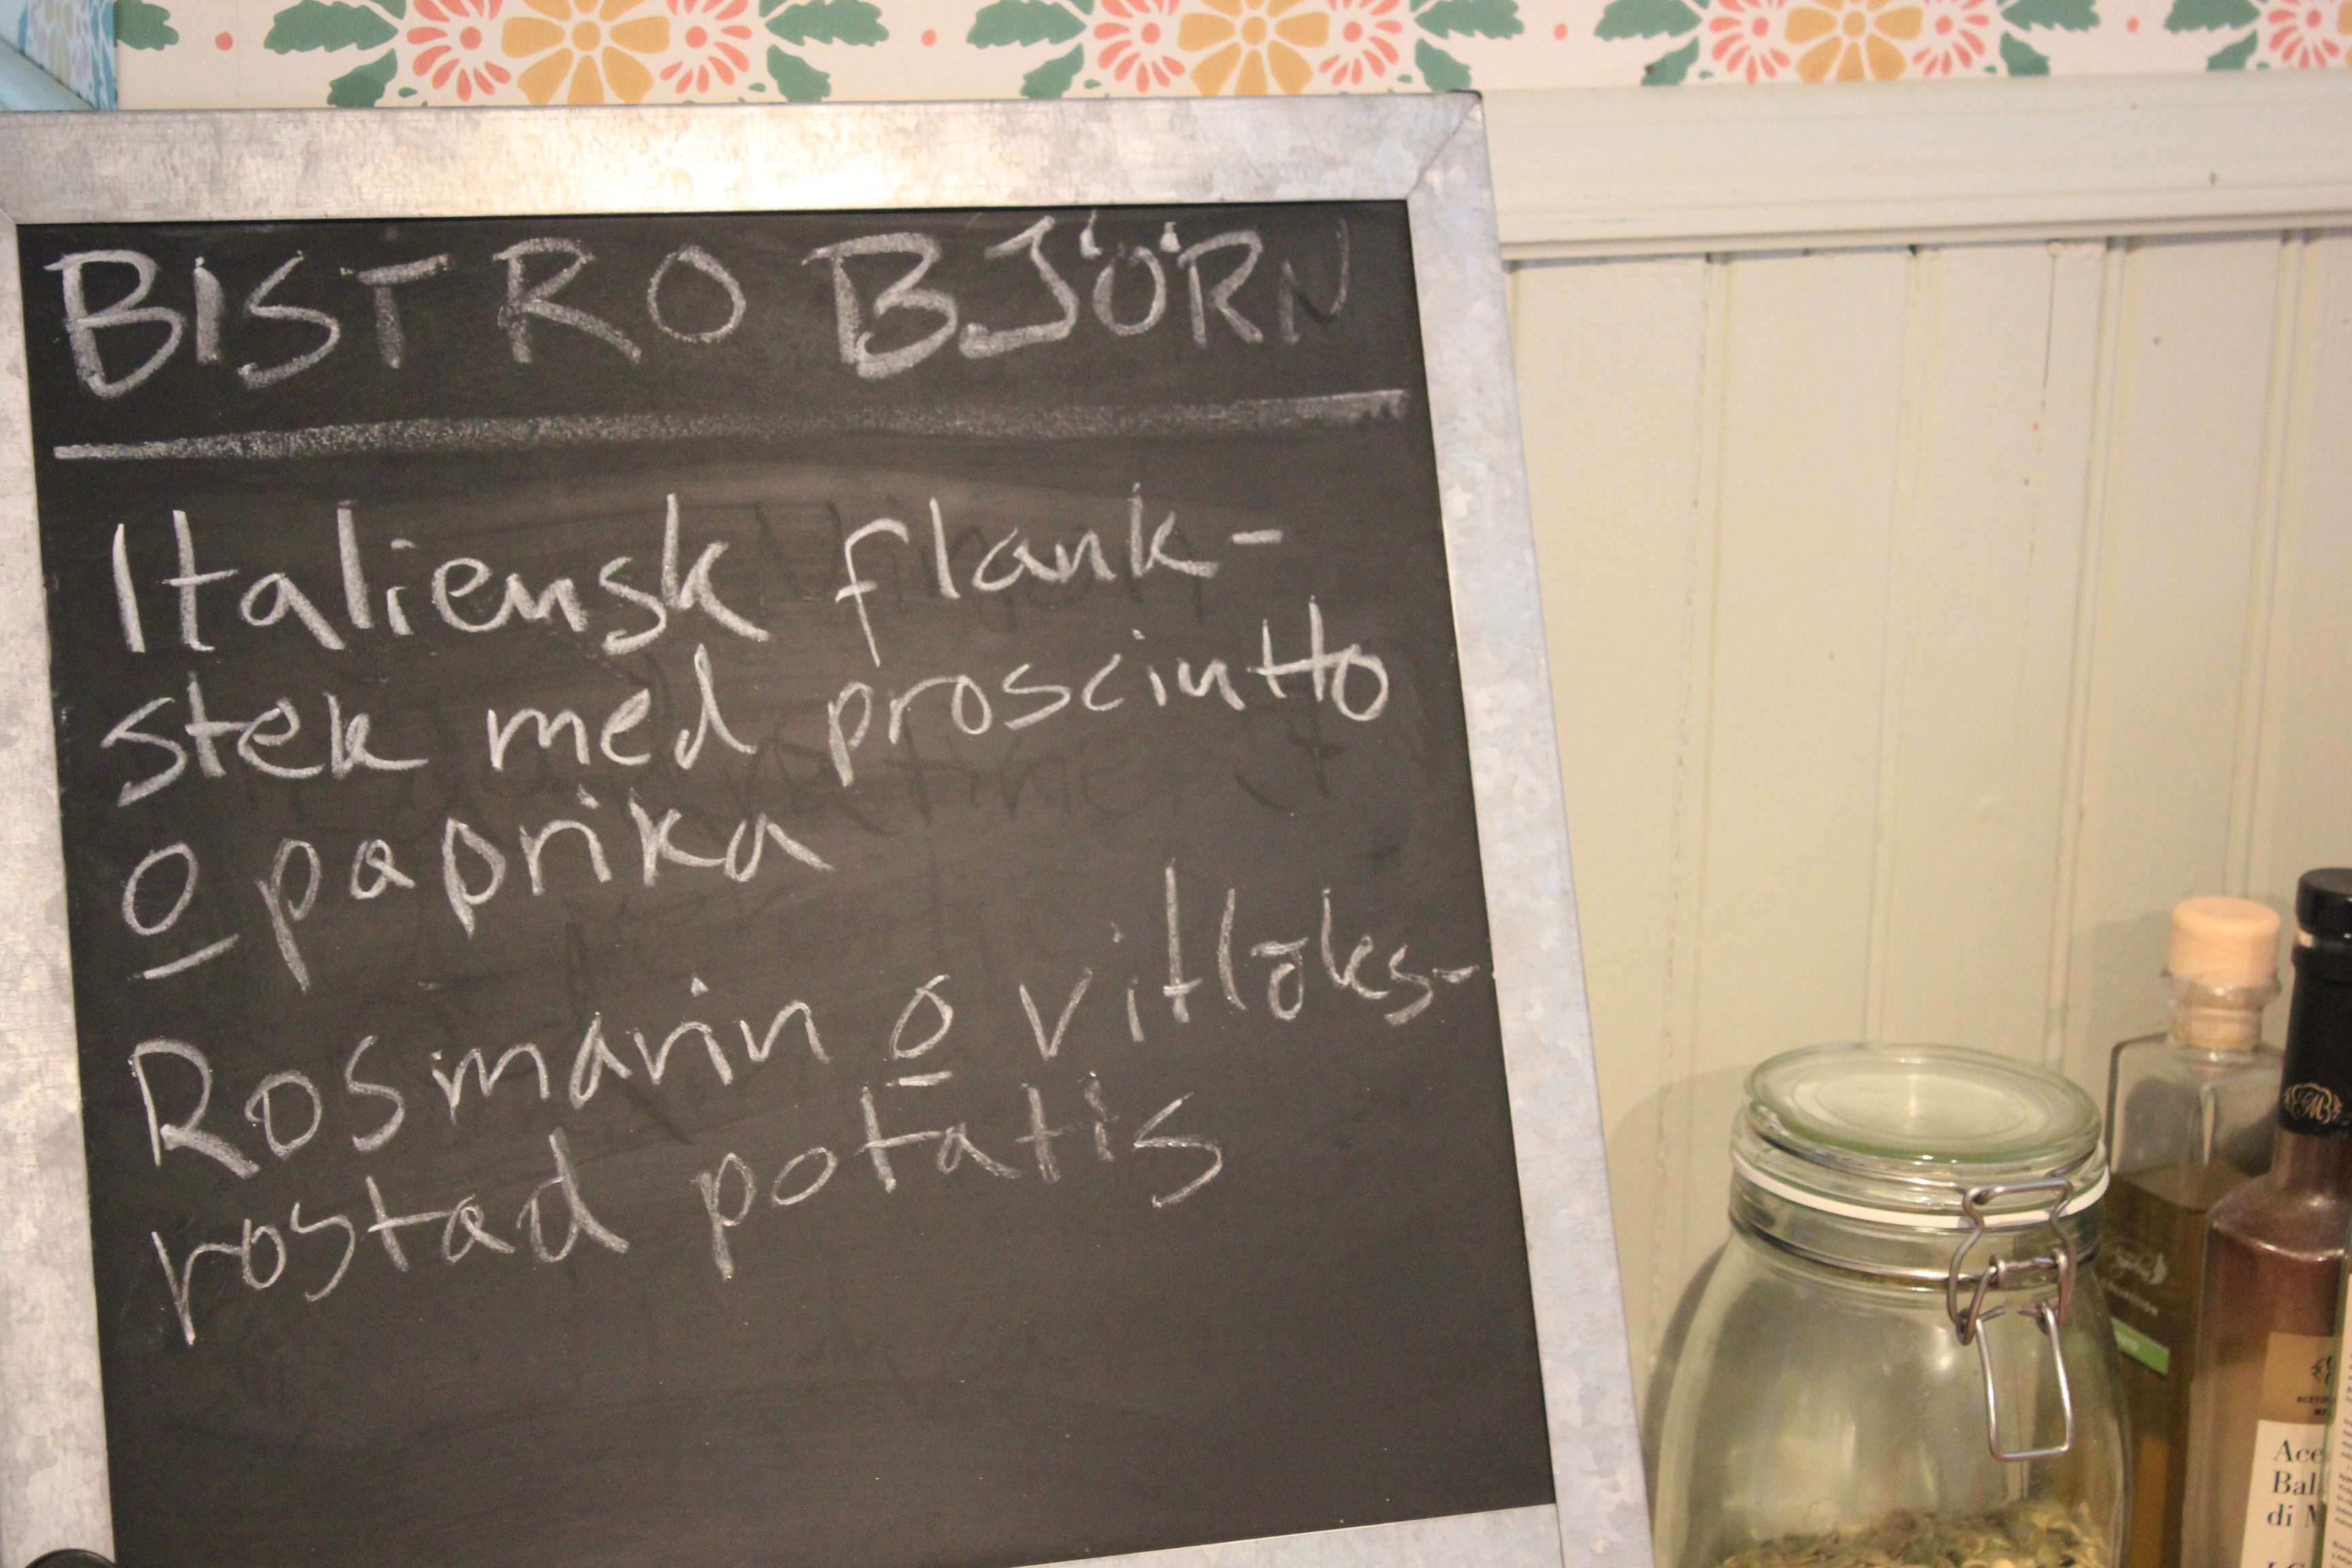 BISTRO BJÖRN
Italiensk flank-
stek med prosciutto
o paprika
Rosmarin o vitlöks-
rostad potatis
Ace
Bal
di M